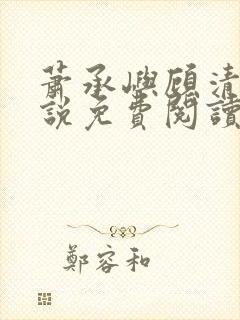 蕭承嶼顧清
說免費閱讀
鄭容和